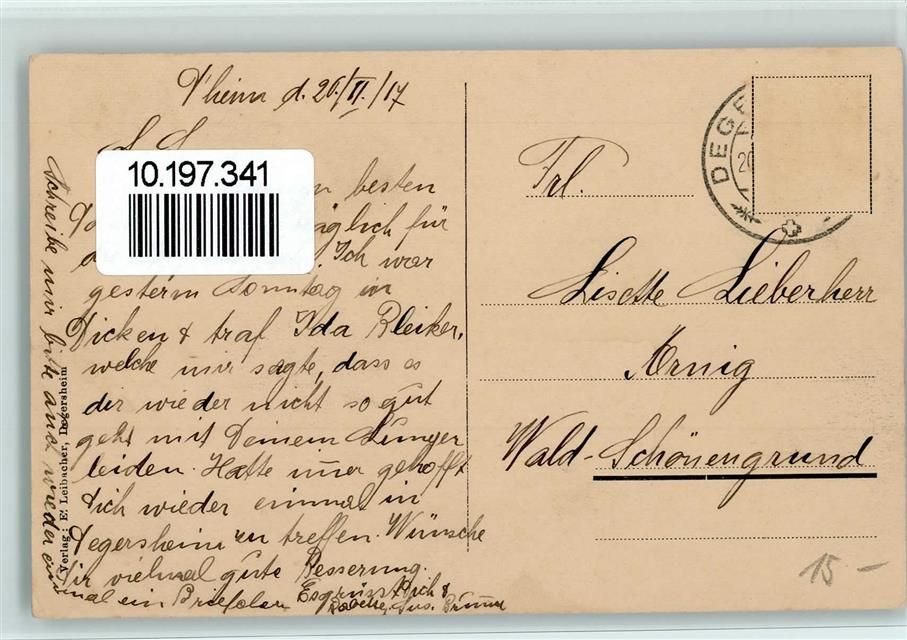 d. 20./II./17
L. L.
10.197.341
besten
für
Ich war
gestern Sonntag in
Dicken & traf Ida Bleiker,
welche mir sagte, dass es
dir wieder nicht so gut
geht mit Deinem Lungen
leiden. Hatte immer gehofft
dich wieder einmal in
Degersheim zu treffen. Wünsche
dir vielmal gute Besserung.
Es grüsst Dich &
Schreibe mir bitte auch wieder ein
mal ein Brieflein
Verlag: E. Leibacher, Degersheim
DEGE
20
Frl.
Lisette Lieberherr
Arnig
Wald-Schönengrund
15 –